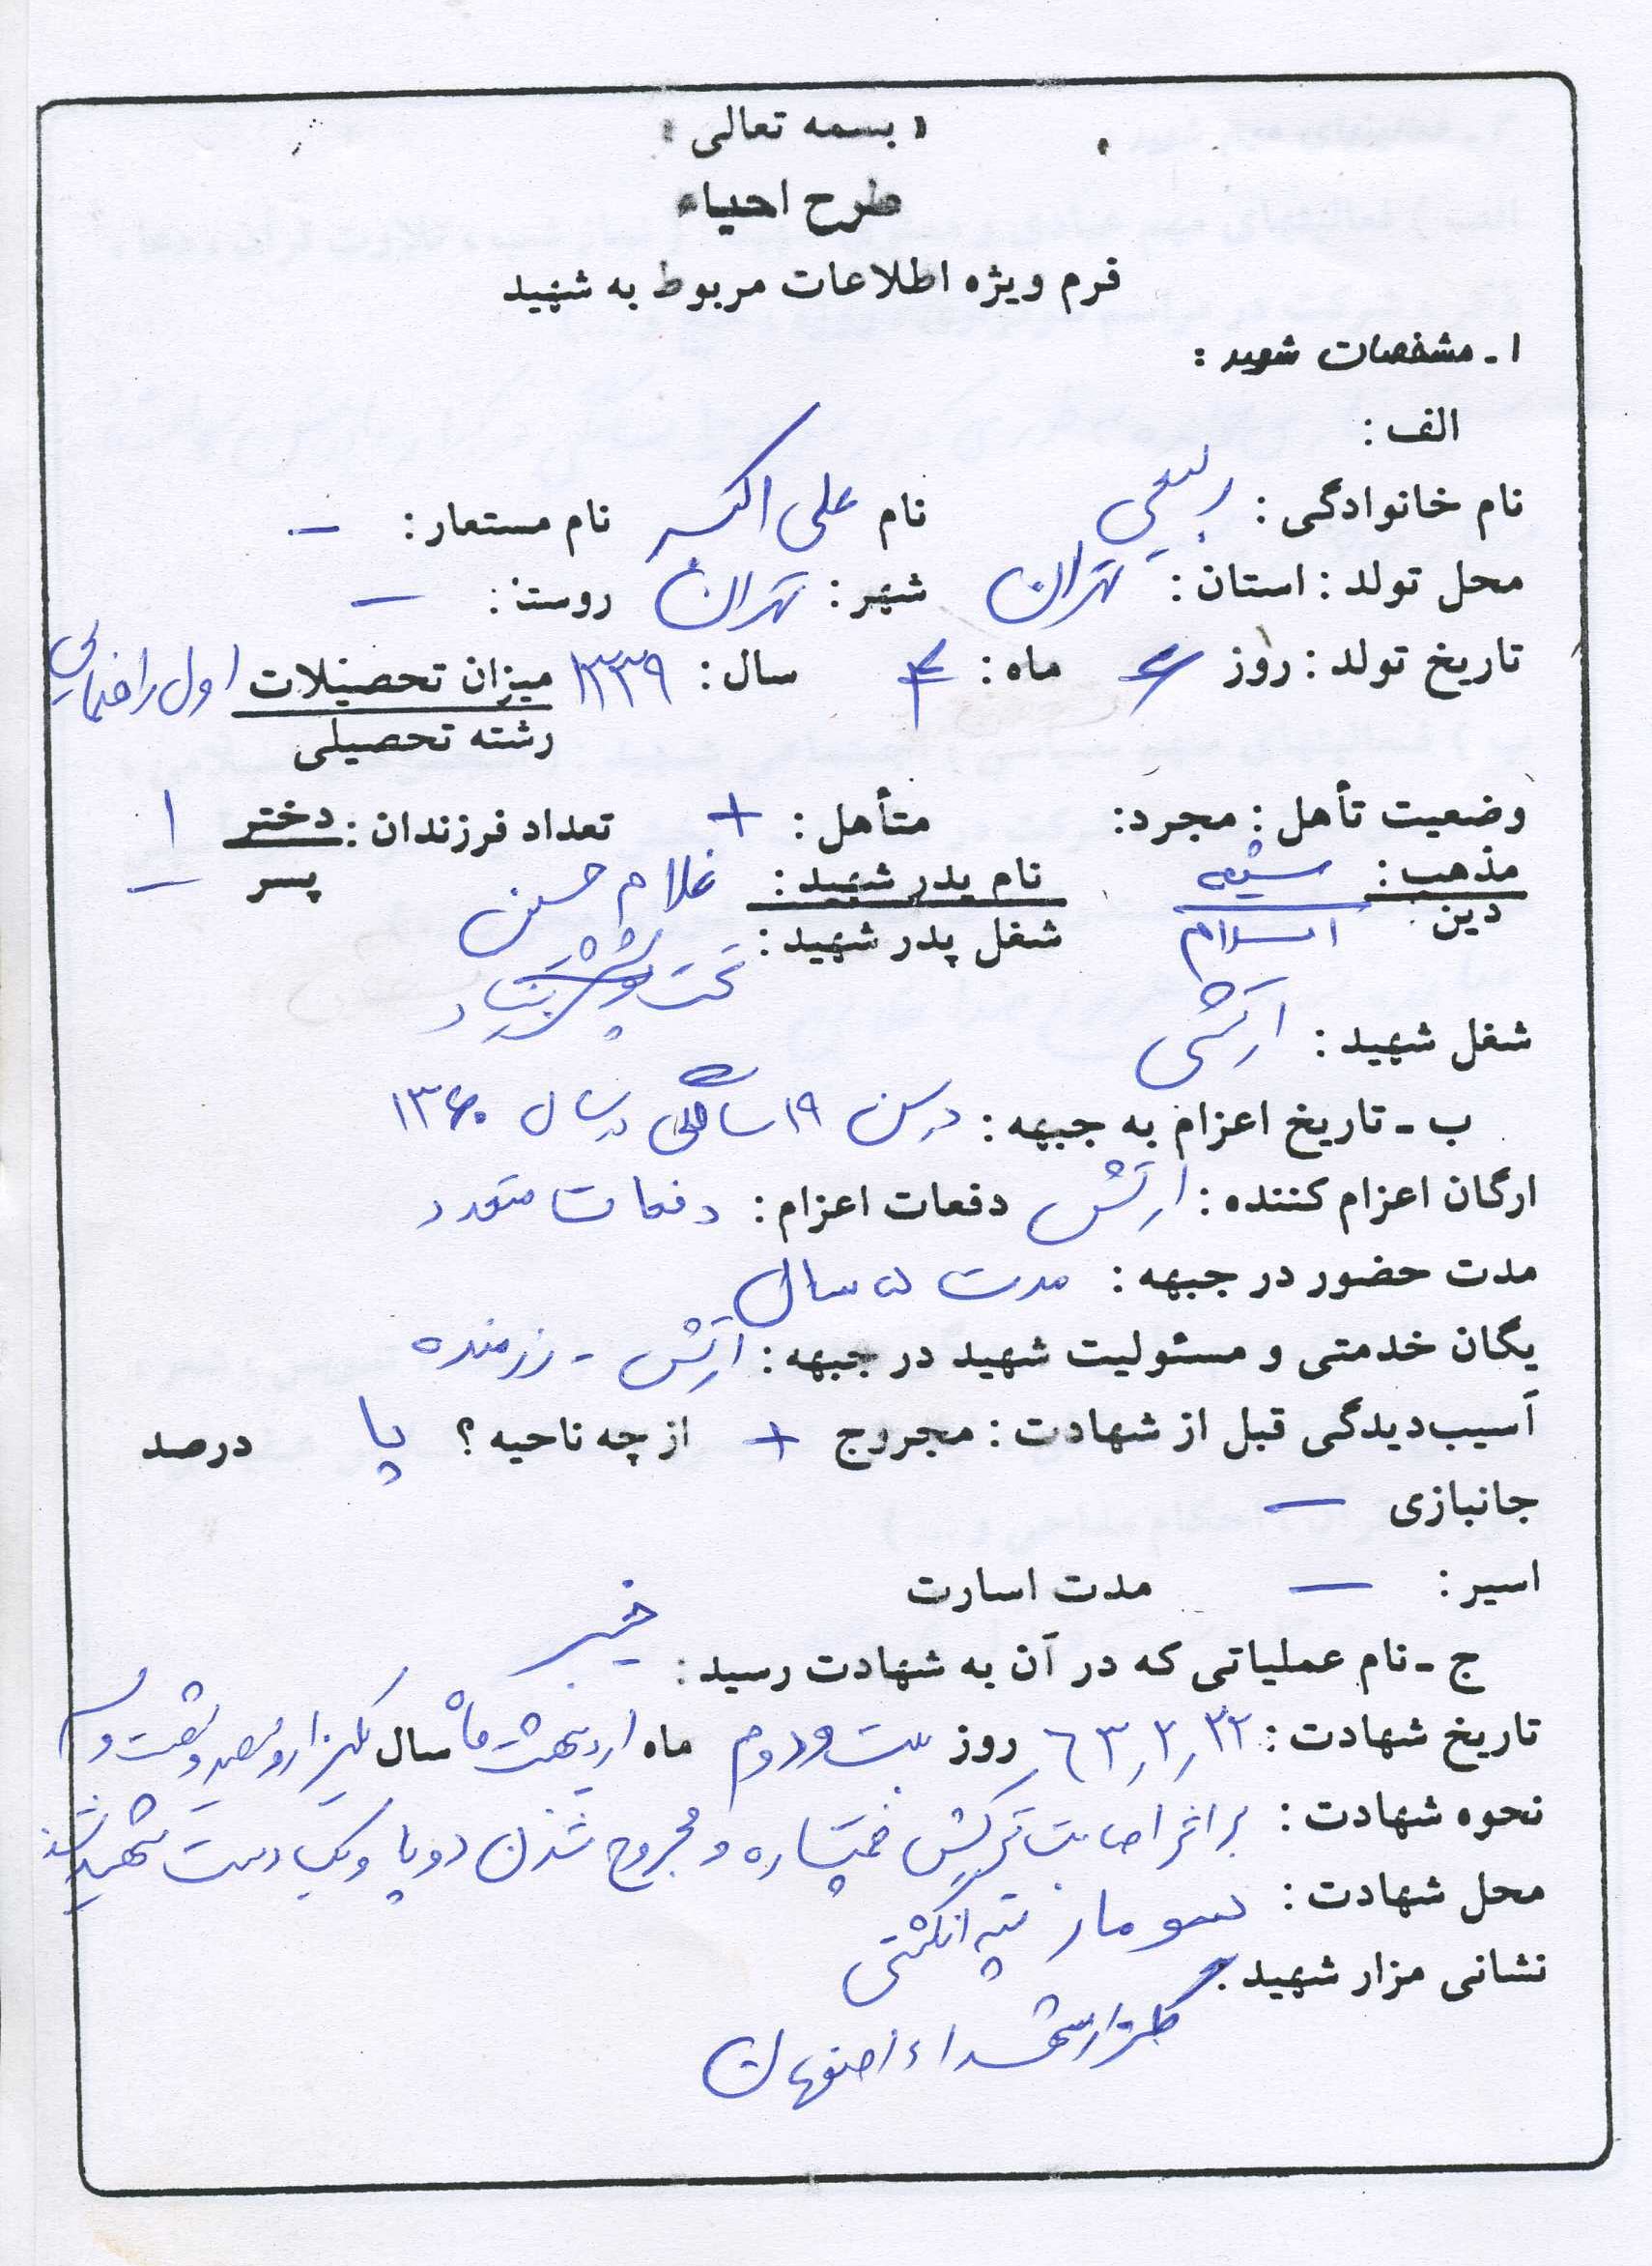 « بسمه تعالی »
طرح احیاء
فرم ویژه اطلاعات مربوط به شهید
۱ـ مشخصات شهید :
الف :
نام خانوادگی : ربیعی نام علی اکبر نام مستعار : –
محل تولد : استان : تهران شهر : تهران روستا : –
تاریخ تولد : روز ماه : ۴ سال : ۱۳۳۹ میزان تحصیلات اول راهنمایی
رشته تحصیلی
وضعیت تأهل : مجرد : متأهل : + تعداد فرزندان : دختر ۱
مذهب : شیعه نام پدر شهید : غلام حسین پسر –
دین : اسلام شغل پدر شهید : تحت پوشش بنیاد
شغل شهید : ارتشی
ب ـ تاریخ اعزام به جبهه : در سن ۱۹ سالگی در سال ۱۳۶۰
ارگان اعزام کننده : ارتش دفعات اعزام : دفعات متعدد
مدت حضور در جبهه : مدت ۵ سال
یگان خدمتی و مسئولیت شهید در جبهه : ارتش - رزمنده
آسیب‌دیدگی قبل از شهادت : مجروح + از چه ناحیه ؟ پا درصد
جانبازی –
اسیر : – مدت اسارت
ج ـ نام عملیاتی که در آن به شهادت رسید : خیبر
تاریخ شهادت : ۶۳٫۲٫۲۲ روز بیست و دوم ماه اردیبهشت ماه سال یکهزار و سیصد و شصت و سه
نحوه شهادت : بر اثر اصابت ترکش خمپاره و مجروح شدن دو پا و یک دست شهید شد
محل شهادت : سومار تپه انگشتی
نشانی مزار شهید :
گلزار شهداء اصفهان